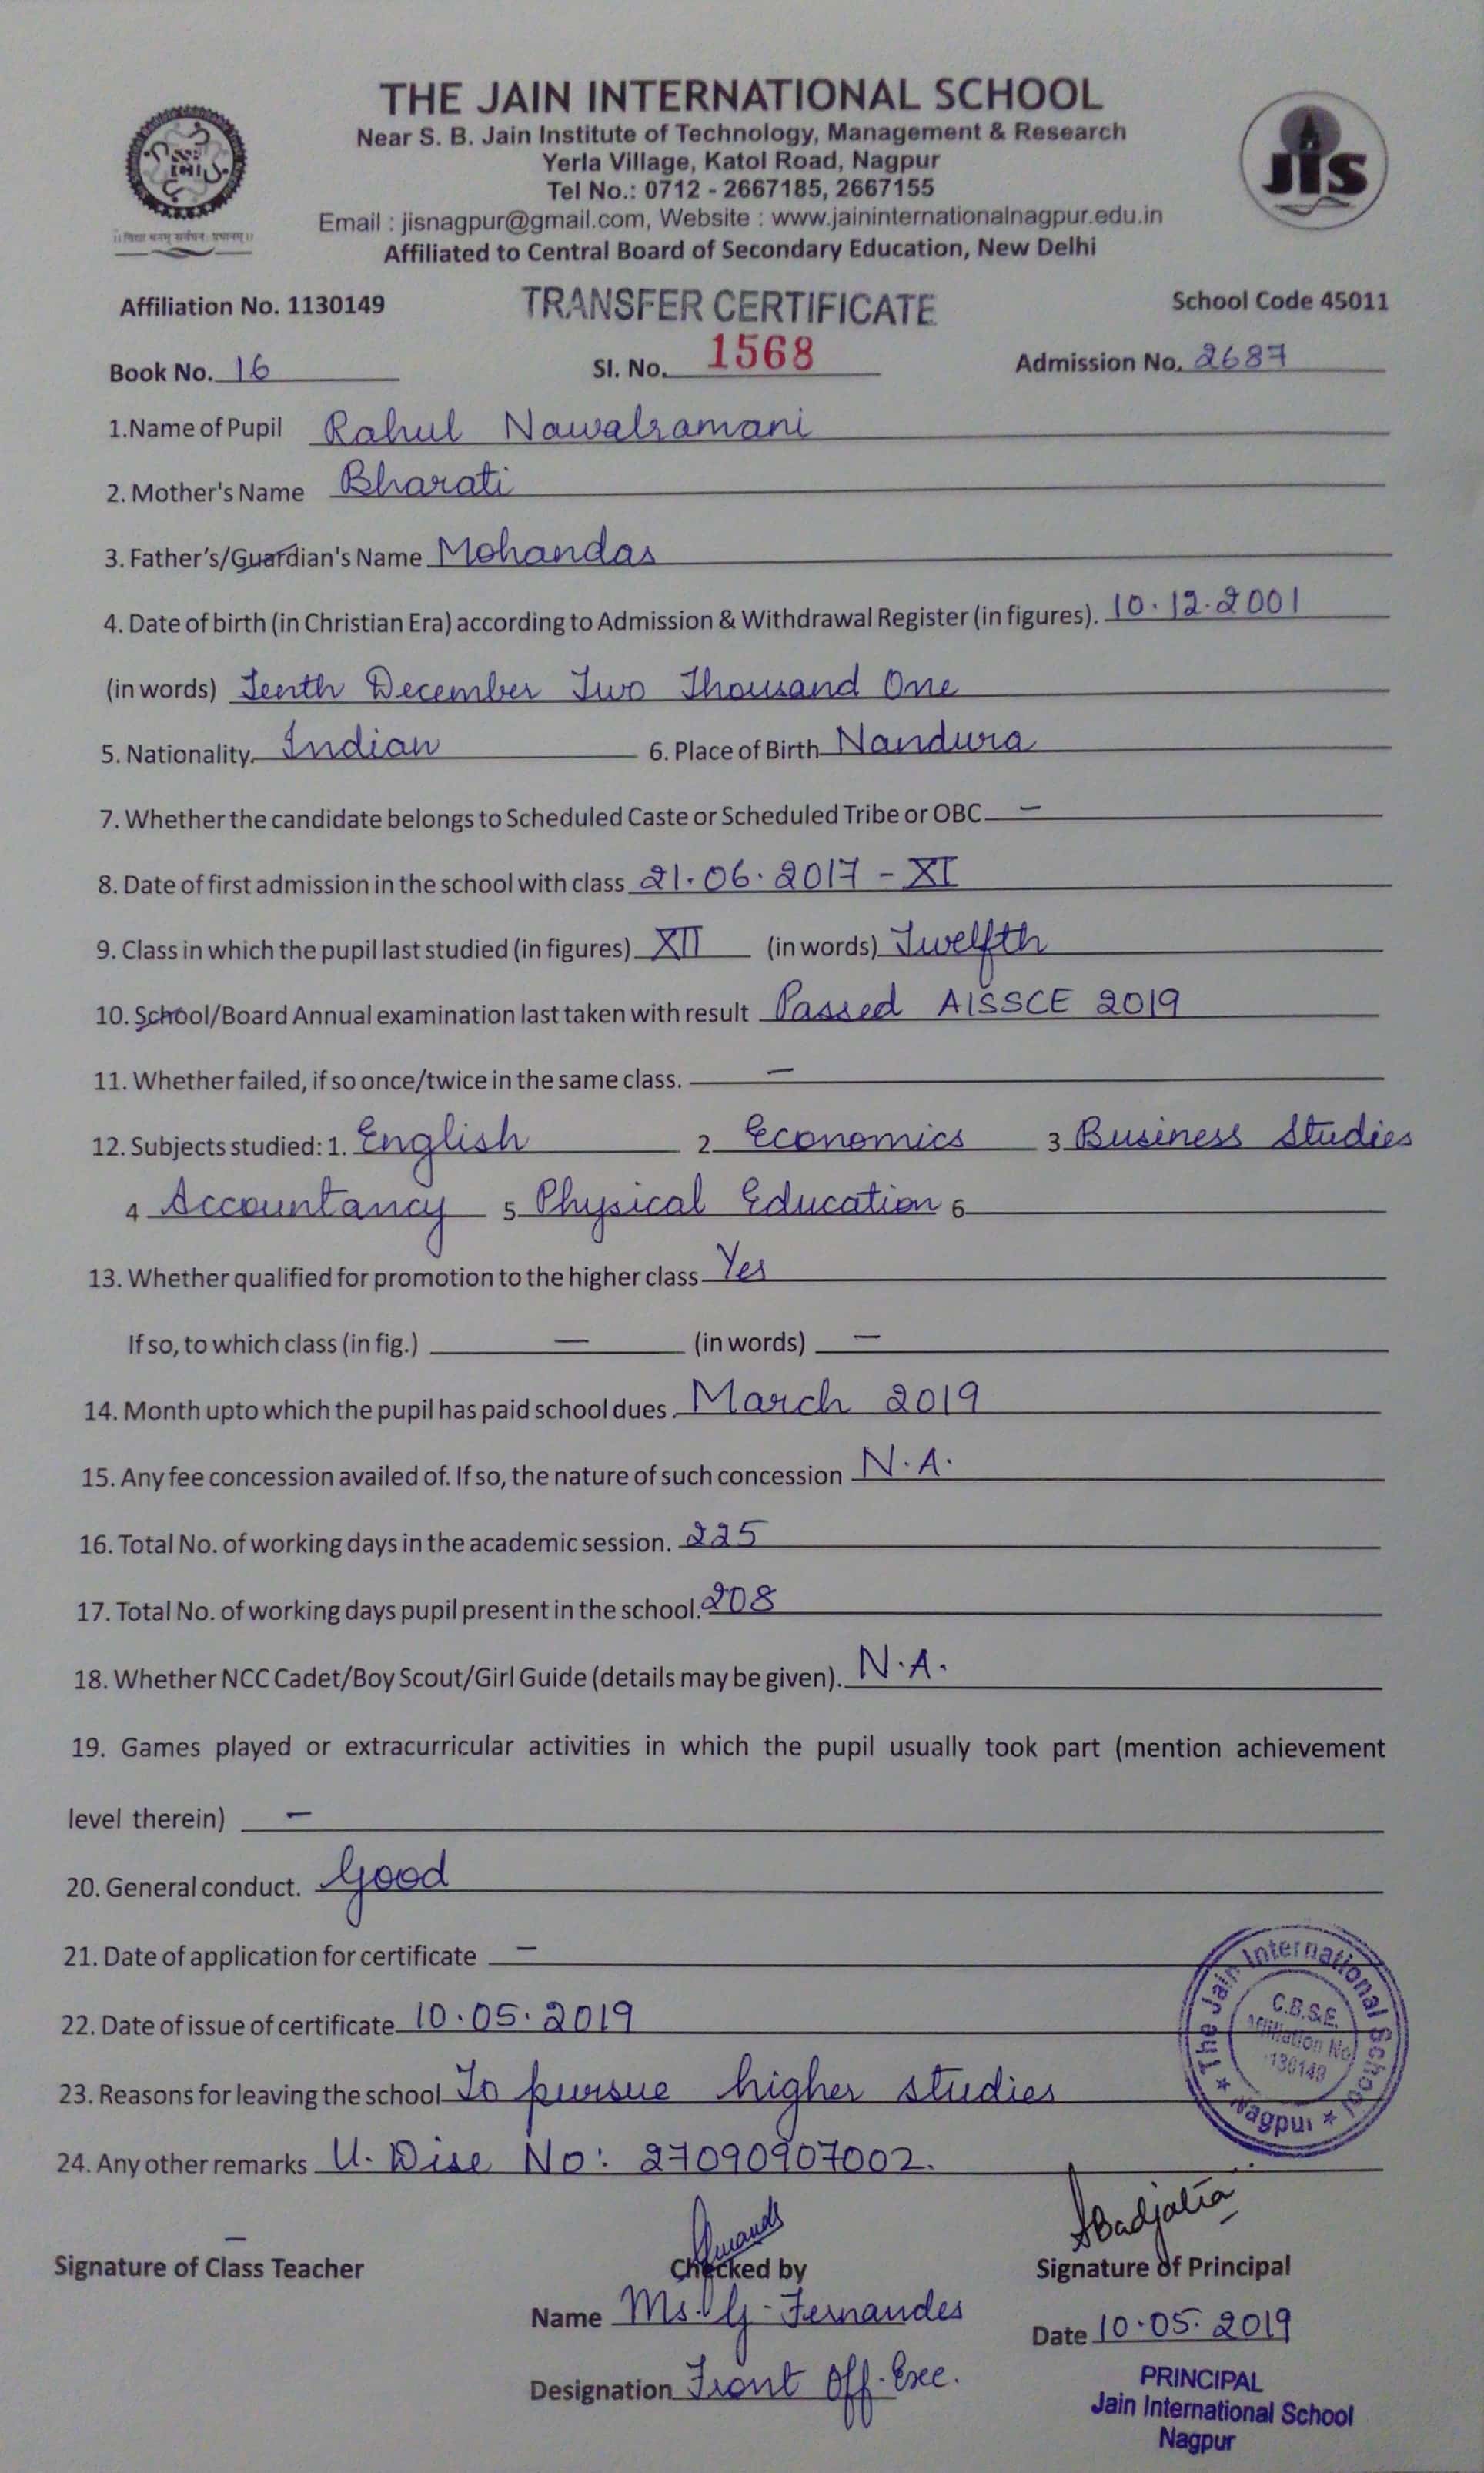 THE JAIN INTERNATIONAL SCHOOL
Near S. B. Jain Institute of Technology, Management & Research
Yerla Village, Katol Road, Nagpur
Tel No.: 0712 - 2667185, 2667155
Email : jisnagpur@gmail.com, Website : www.jaininternationalnagpur.edu.in
Affiliated to Central Board of Secondary Education, New Delhi
JIS
Affiliation No. 1130149 TRANSFER CERTIFICATE School Code 45011
Book No. 16 Sl. No. 1568 Admission No. 2687
1.Name of Pupil Rahul Nawalramani
2. Mother's Name Bharati
3. Father's/Guardian's Name Mohandas
4. Date of birth (in Christian Era) according to Admission & Withdrawal Register (in figures). 10.12.2001
(in words) Tenth December Two Thousand One
5. Nationality. Indian 6. Place of Birth Nandura
7. Whether the candidate belongs to Scheduled Caste or Scheduled Tribe or OBC. –
8. Date of first admission in the school with class 21.06.2017 - XI
9. Class in which the pupil last studied (in figures) XII (in words) Twelfth
10. School/Board Annual examination last taken with result Passed AISSCE 2019
11. Whether failed, if so once/twice in the same class. –
12. Subjects studied: 1. English 2. Economics 3 Business Studies
4 Accountancy 5 Physical Education 6
13. Whether qualified for promotion to the higher class Yes
If so, to which class (in fig.) – (in words) –
14. Month upto which the pupil has paid school dues. March 2019
15. Any fee concession availed of. If so, the nature of such concession N.A.
16. Total No. of working days in the academic session. 225
17. Total No. of working days pupil present in the school. 208
18. Whether NCC Cadet/Boy Scout/Girl Guide (details may be given). N.A.
19. Games played or extracurricular activities in which the pupil usually took part (mention achievement
level therein) –
20. General conduct. Good
21. Date of application for certificate –
22. Date of issue of certificate 10.05.2019
23. Reasons for leaving the school To pursue higher studies
24. Any other remarks U. Dise No: 27090907002.
★ The Jain International School ★ Nagpur
C.B.S.E.
Affiliation No
130149
–
Signature of Class Teacher Checked by Signature of Principal
Name Ms. G. Fernandes
Date 10.05.2019
Designation Front Off. Exec.
PRINCIPAL
Jain International School
Nagpur